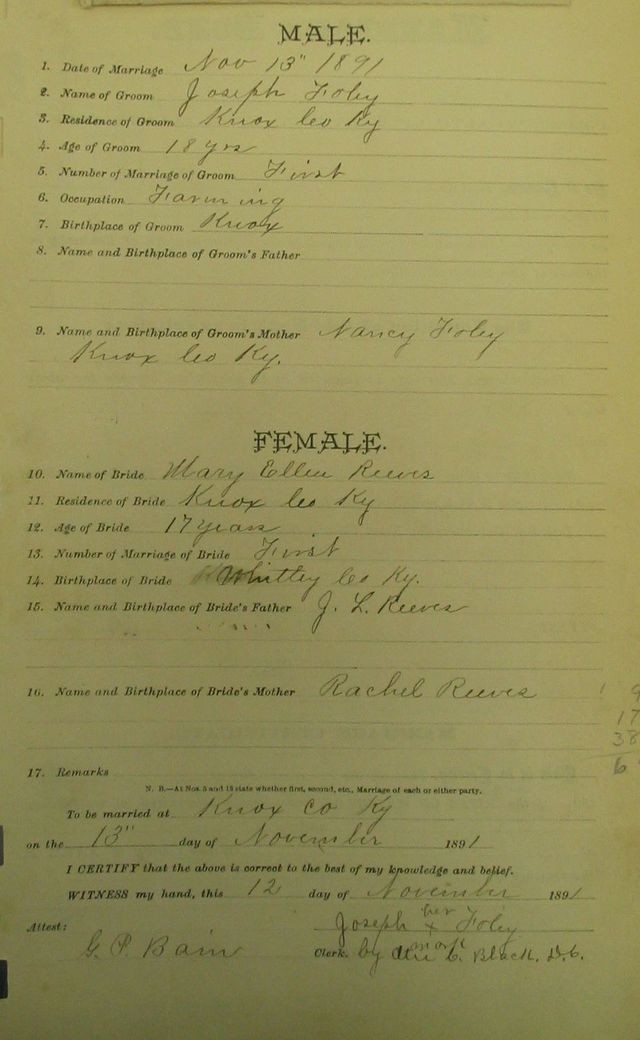 MALE.
1. Date of Marriage Nov 13" 1891
2. Name of Groom Joseph Foley
3. Residence of Groom Knox Co Ky
4. Age of Groom 18 yrs
5. Number of Marriage of Groom First
6. Occupation Farming
7. Birthplace of Groom Knox
8. Name and Birthplace of Groom's Father
9. Name and Birthplace of Groom's Mother Nancy Foley
Knox Co Ky.
FEMALE.
10. Name of Bride Mary Ellen Reeves
11. Residence of Bride Knox Co Ky
12. Age of Bride 17 years
13. Number of Marriage of Bride First
14. Birthplace of Bride Whitley Co Ky.
15. Name and Birthplace of Bride's Father J. L. Reeves
16. Name and Birthplace of Bride's Mother Rachel Reeves
9
17
38
6
17. Remarks
N. B.—At Nos. 5 and 13 state whether first, second, etc., Marriage of each or either party.
To be married at Knox Co Ky
on the 13" day of November 1891
I CERTIFY that the above is correct to the best of my knowledge and belief.
WITNESS my hand, this 12 day of November 1891
her
Attest: Joseph x Foley
mark
G. P. Bain Clerk. by C. Black, D.C.